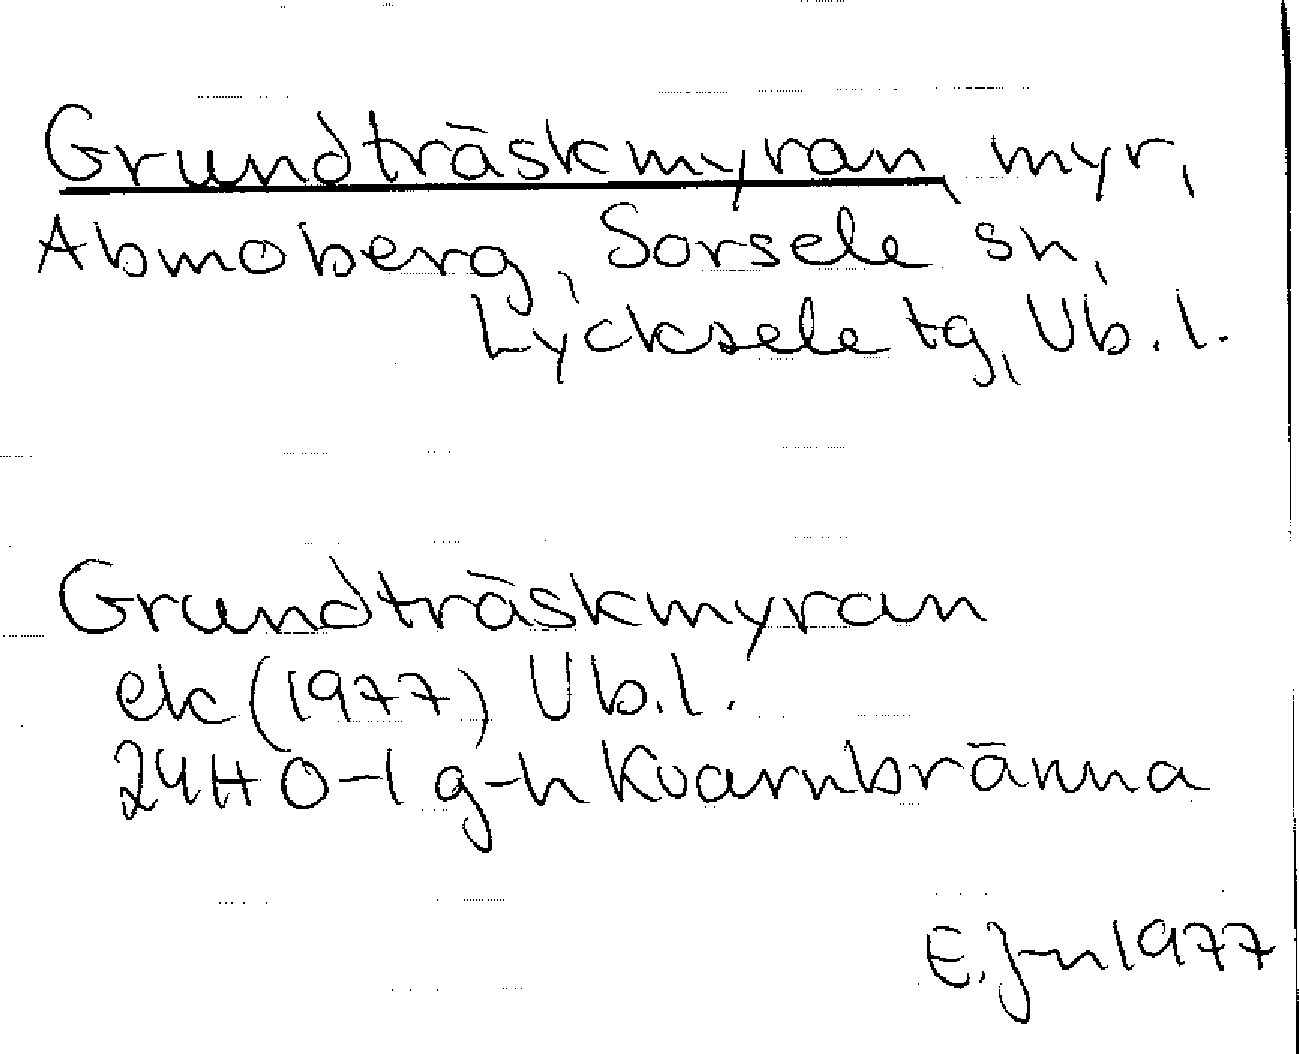 Grundträskmyran, myr,
Abmoberg, Sorsele sn,
Lycksele tg, Vb. l.
Grundträskmyran
ek (1977) Vb. l.
24H 0-1 g-h Kvarnbränna
E. J-n 1977